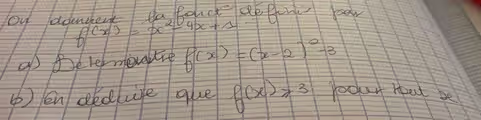 On donnent la fonct° définie par
f(x) = x² - 4x + 1
a) Démontre f(x) = (x-2)² - 3
b) En déduire que f(x) ≥ 3 pour tout x